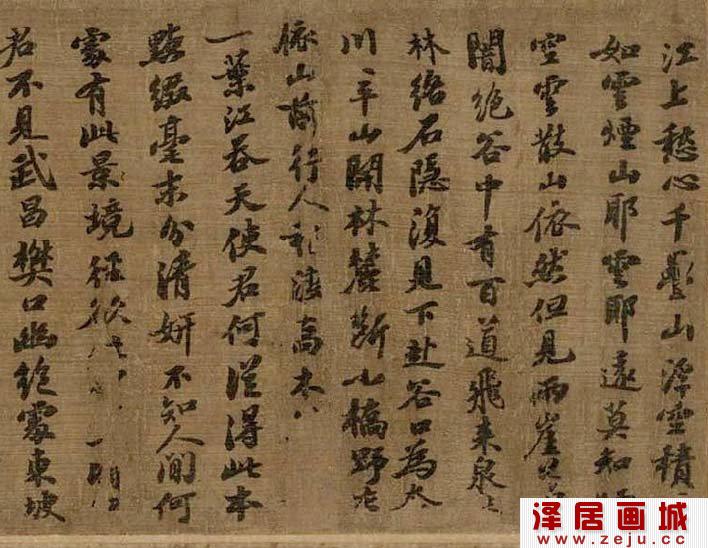 江上愁心千疊山浮空積
如雲煙山耶雲耶遠莫知
空雲散山依然但見兩崖
闇絶谷中有百道飛来泉
林絡石隱復見下赴谷口為
川〻平山開林麓斷小橋野
依山前行人稍渡喬木
一葉江吞天使君何從得此本
點綴毫末分清妍不知人間何
處有此景境徑欲
君不見武昌樊口幽絶處東坡
泽居画城
www.zeju.cc